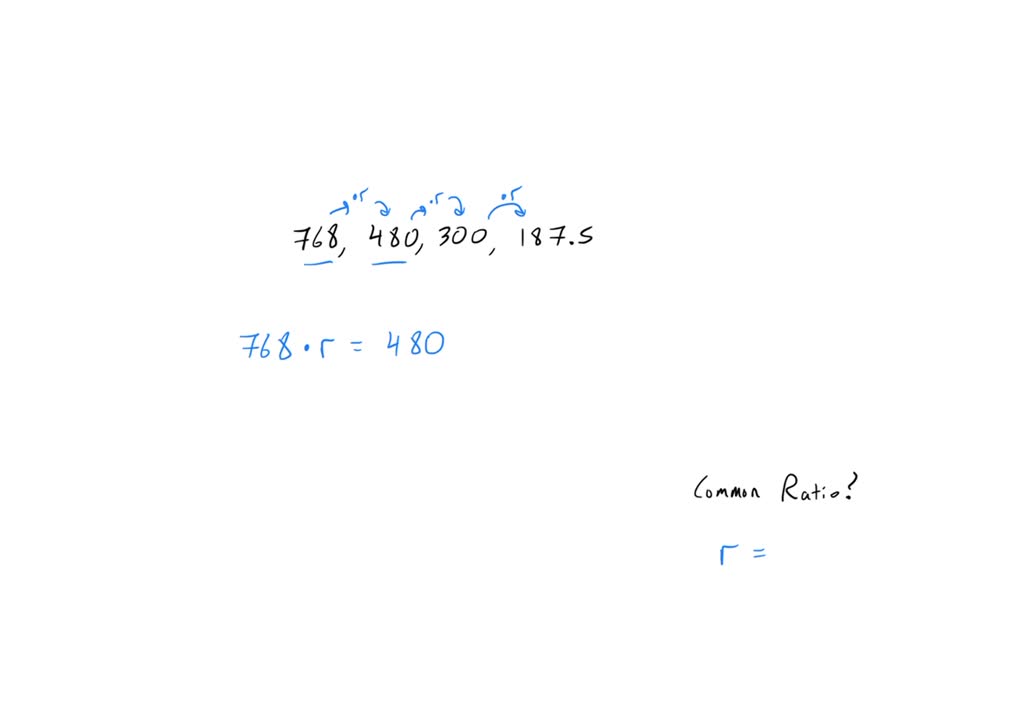 ·r ·r ·r
768, 480, 300, 187.5
768 · r = 480
Common Ratio?
r =